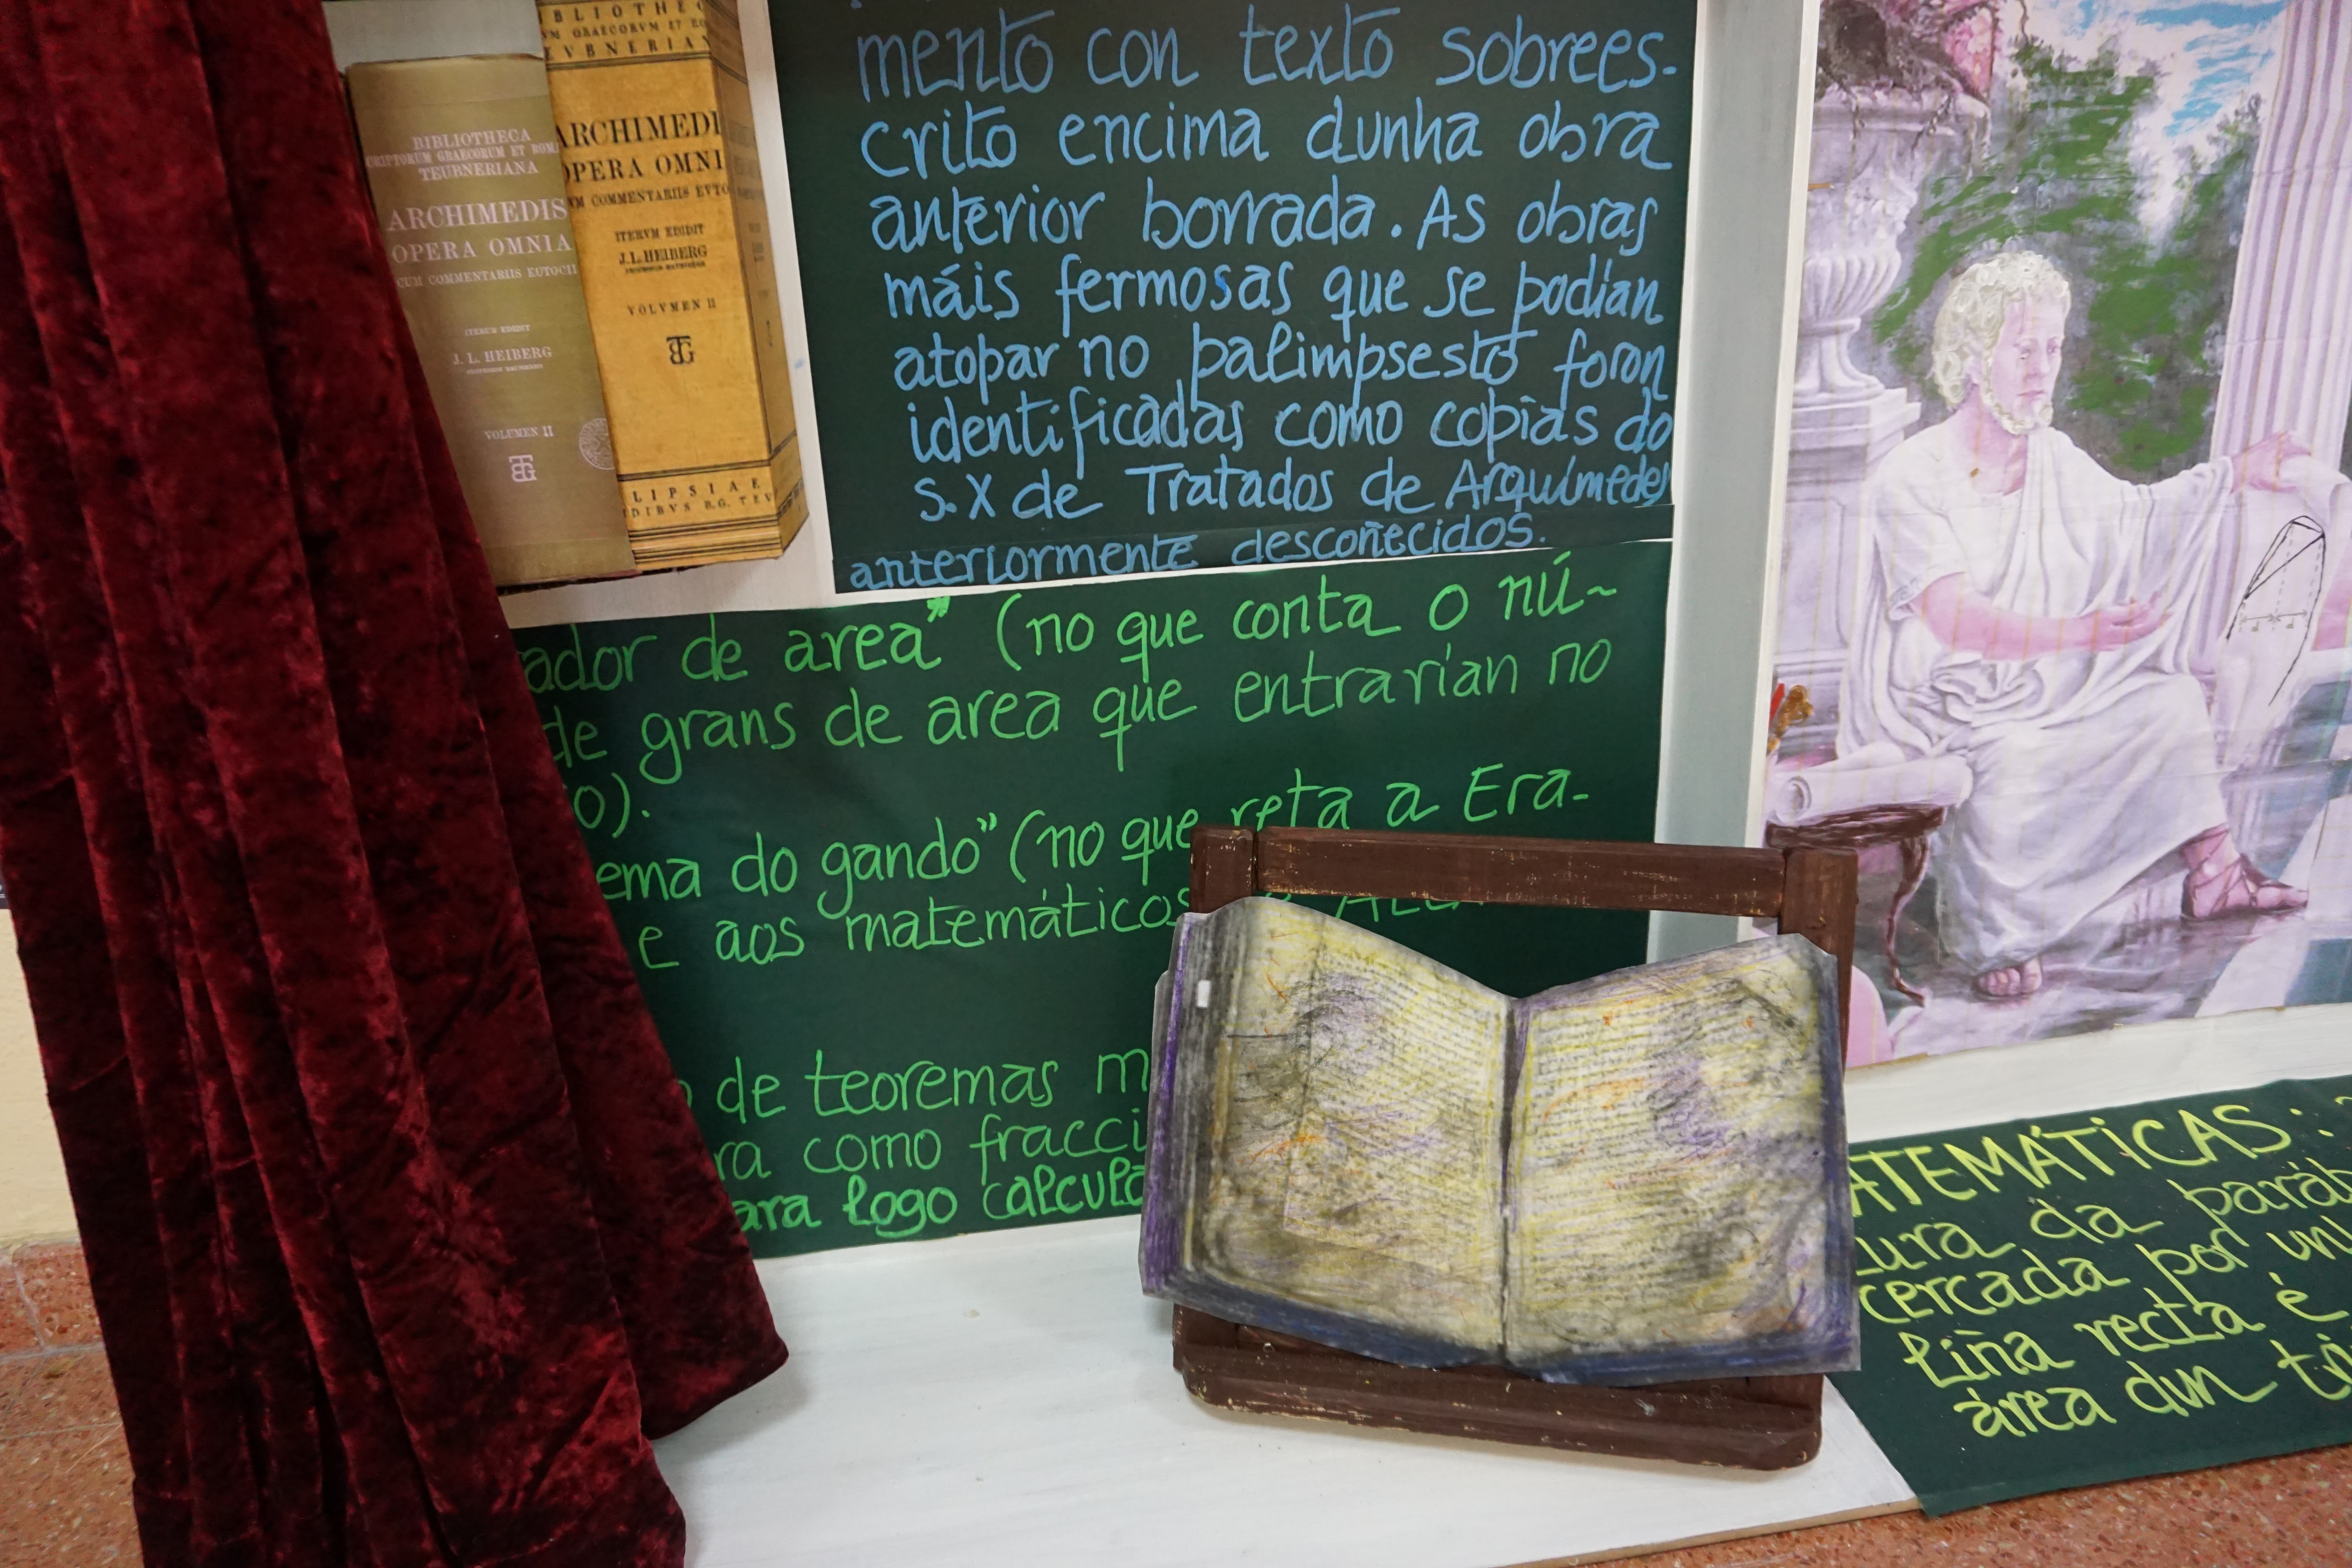 BIBLIOTHECA
TEUBNERIANA
ARCHIMEDIS
OPERA OMNIA
CUM COMMENTARIIS EUTOCII
ITERUM EDIDIT
J. L. HEIBERG
VOLUMEN II
BLIOTHEC
VM GRAECORVM ET RO
EVBNERIAN
ARCHIMEDI
OPERA OMNI
VM COMMENTARIIS EVTO
ITERVM EDIDIT
J. L. HEIBERG
VOLVMEN II
LIPSIAE
DIBVS B.G. TEV
mento con texto sobrees-
crito encima dunha obra
anterior borrada. As obras
máis fermosas que se podían
atopar no palimpsesto foron
identificadas como copias do
S. X de Tratados de Arquímedes
anteriormente descoñecidos.
ador de area" (no que conta o nú-
de grans de area que entrarían no
o).
ema do gando" (no que reta a Era-
e aos matemáticos
de teoremas m
ra como fracci
ara logo calcula
ATEMÁTICAS:
tura da paráb
cercada por un
liña recta é
área dun